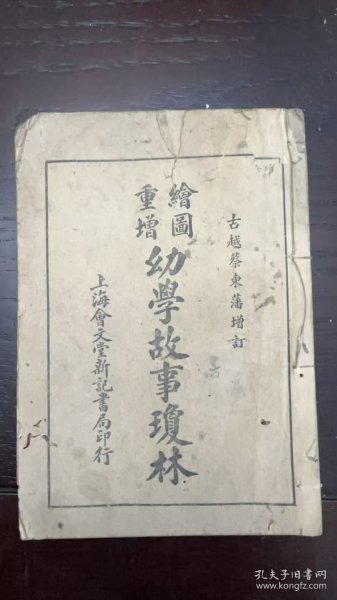 古越蔡東藩增訂
繪圖
重增
幼學故事瓊林
上海會文堂新記書局印行
孔夫子旧书网
www.kongfz.com